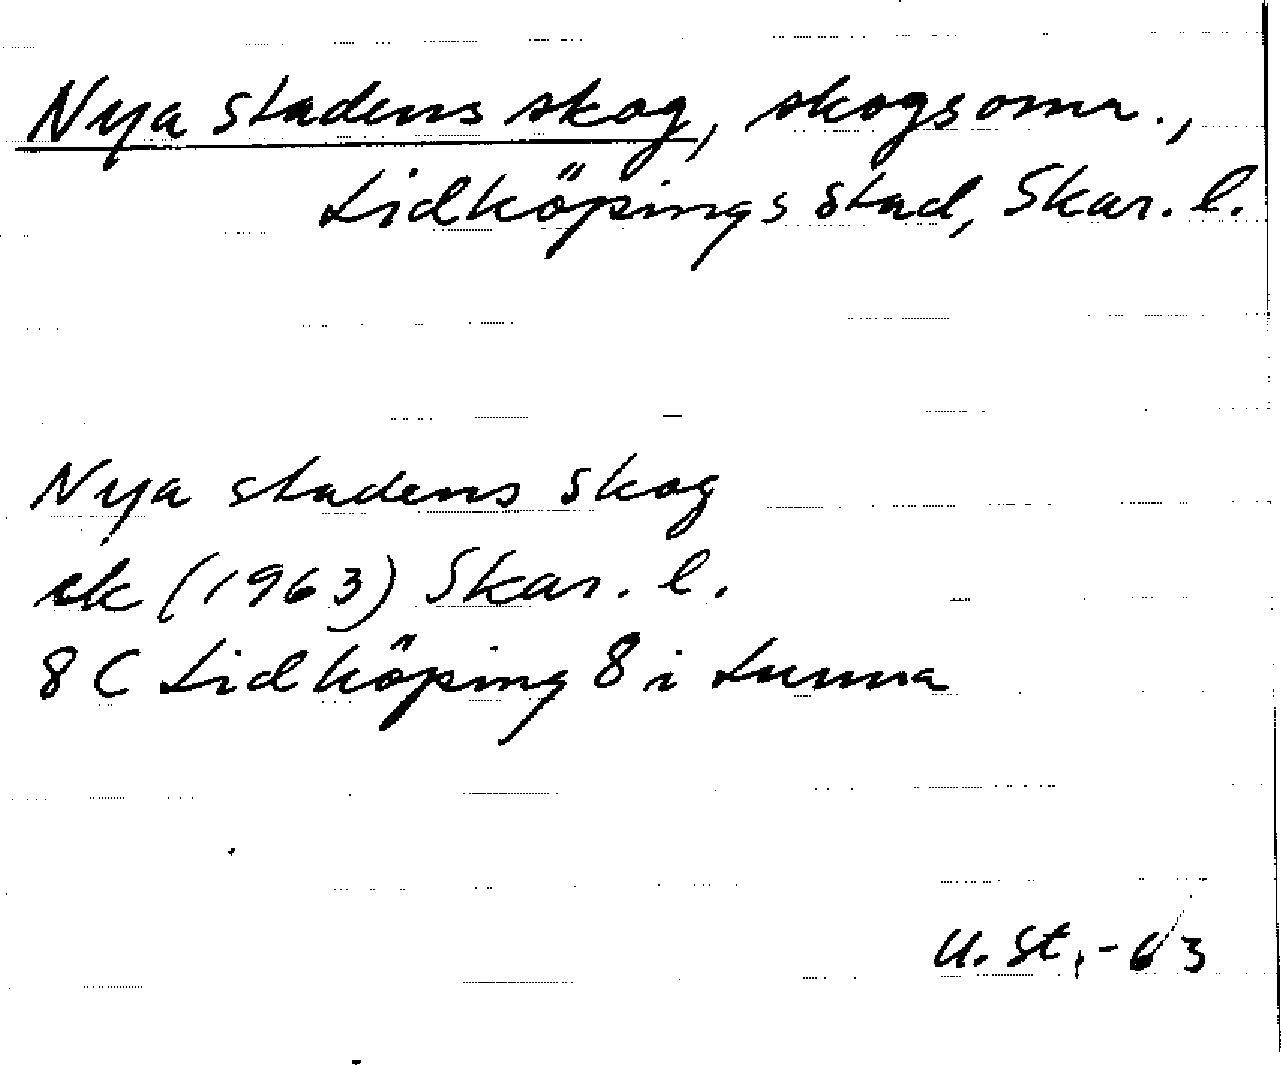 Nya stadens skog, skogsomr.,
Lidköpings stad, Skar. l.
Nya stadens skog
ek (1963) Skar. l.
8 C Lidköping 8 i Lunna
U. St. -63